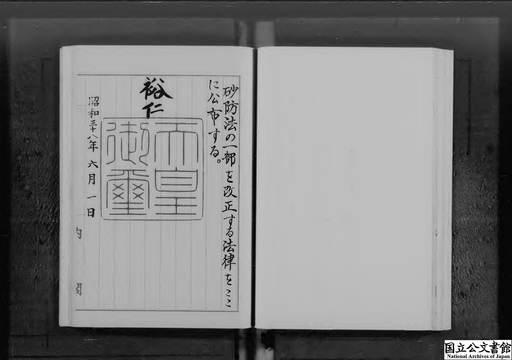 砂防法の一部を改正する法律をここ
に公布する。
裕仁
天皇
御璽
昭和三十八年 六月 一日
内閣
国立公文書館
National Archives of Japan